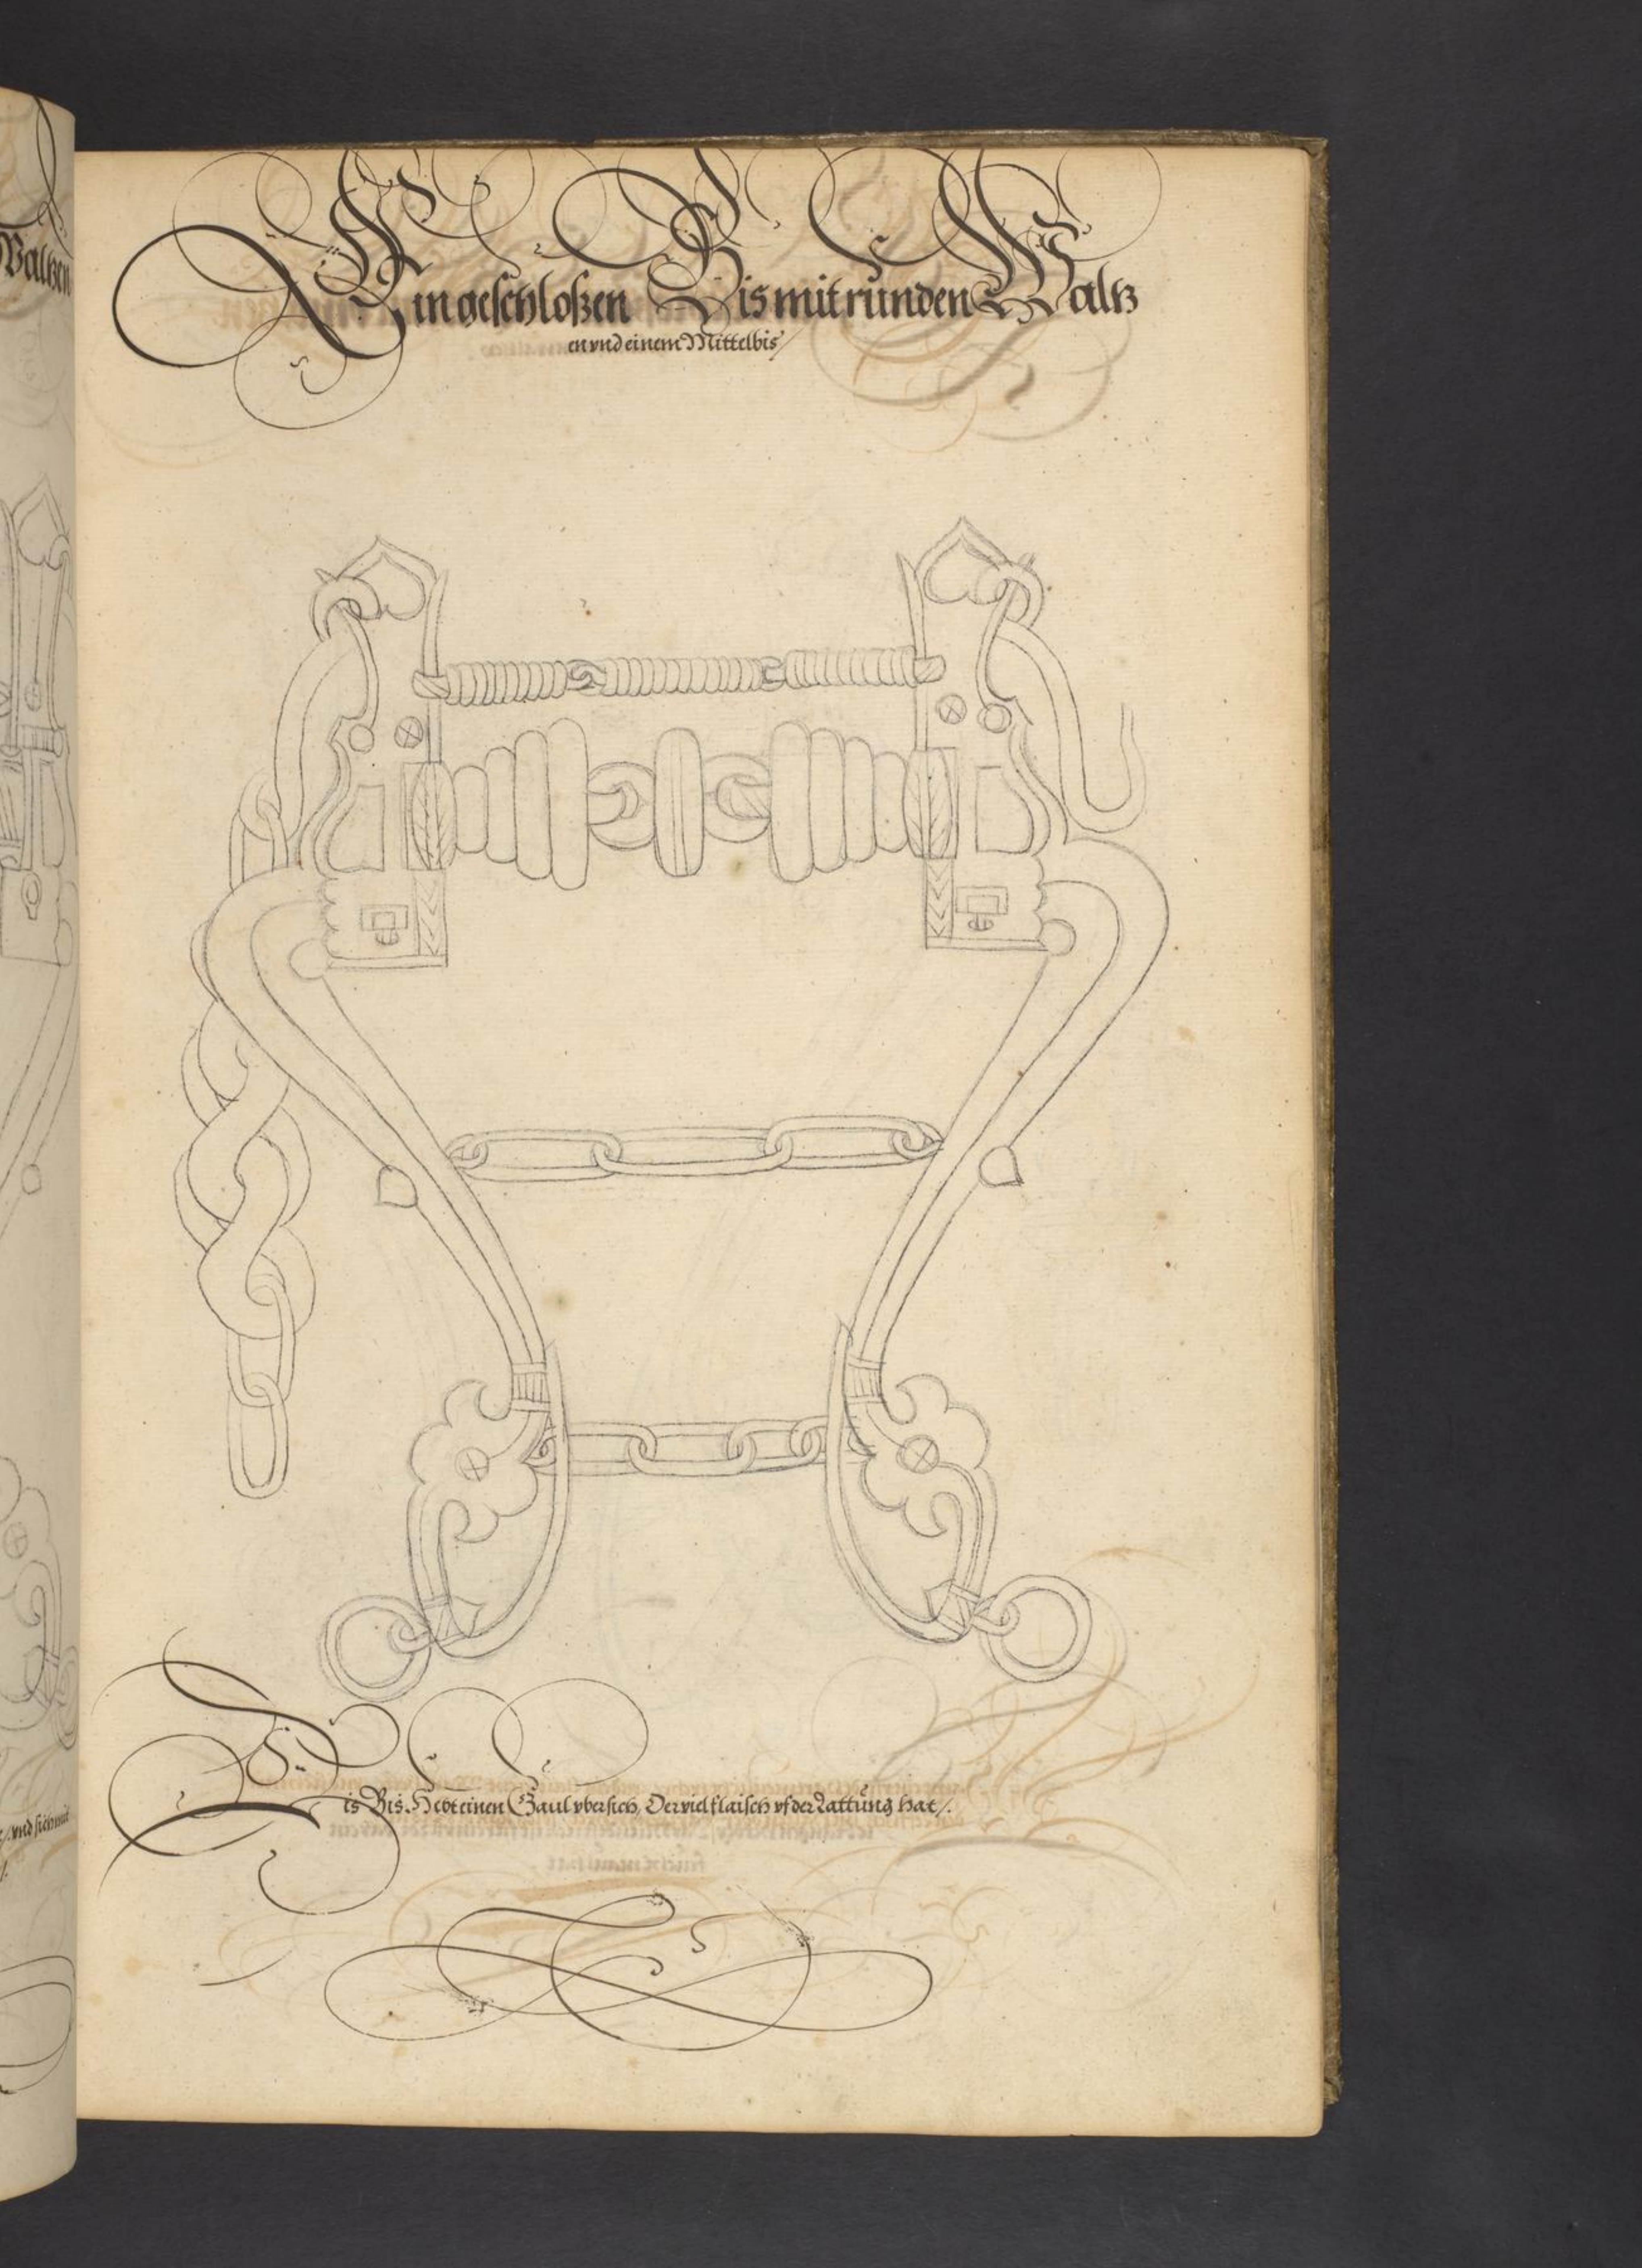 Ein geschloßen Bis mit runden Waltz
en vnd einem Mittelbis /
Dis Bis Hebt einen Gaul vbersich, Der viel flaisch vf der Lattung hat /.
Waltzen
vnd sich mit